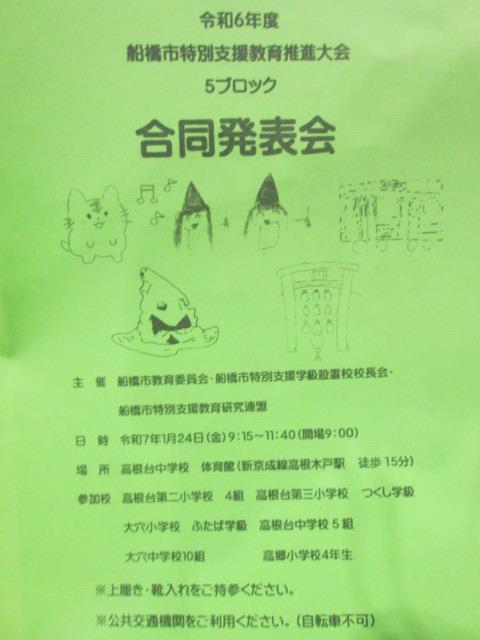 令和6年度
船橋市特別支援教育推進大会
5ブロック
合同発表会
主 催 船橋市教育委員会・船橋市特別支援学級設置校校長会・
船橋市特別支援教育研究連盟
日 時 令和7年1月24日(金)9:15~11:40(開場9:00)
場 所 高根台中学校 体育館(新京成線高根木戸駅 徒歩15分)
参加校 高根台第二小学校 4組 高根台第三小学校 つくし学級
大穴小学校 ふたば学級 高根台中学校5組
大穴中学校10組 高郷小学校4年生
※上履き・靴入れをご持参ください。
※公共交通機関をご利用ください。(自転車不可)